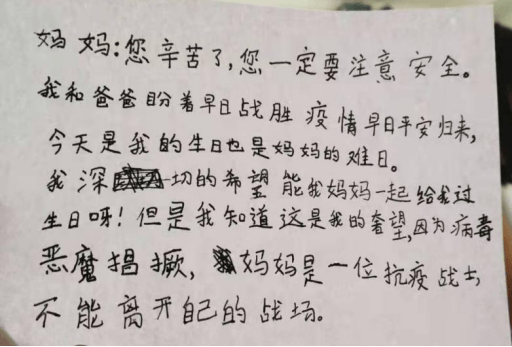 妈妈:您辛苦了,您一定要注意安全。
我和爸爸盼着早日战胜疫情早日平安归来,
今天是我的生日也是妈妈的难日。
我深一切的希望能我妈妈一起给我过
生日呀!但是我知道这是我的奢望,因为病毒
恶魔猖撅,妈妈是一位抗疫战士,
不能离开自己的战场。